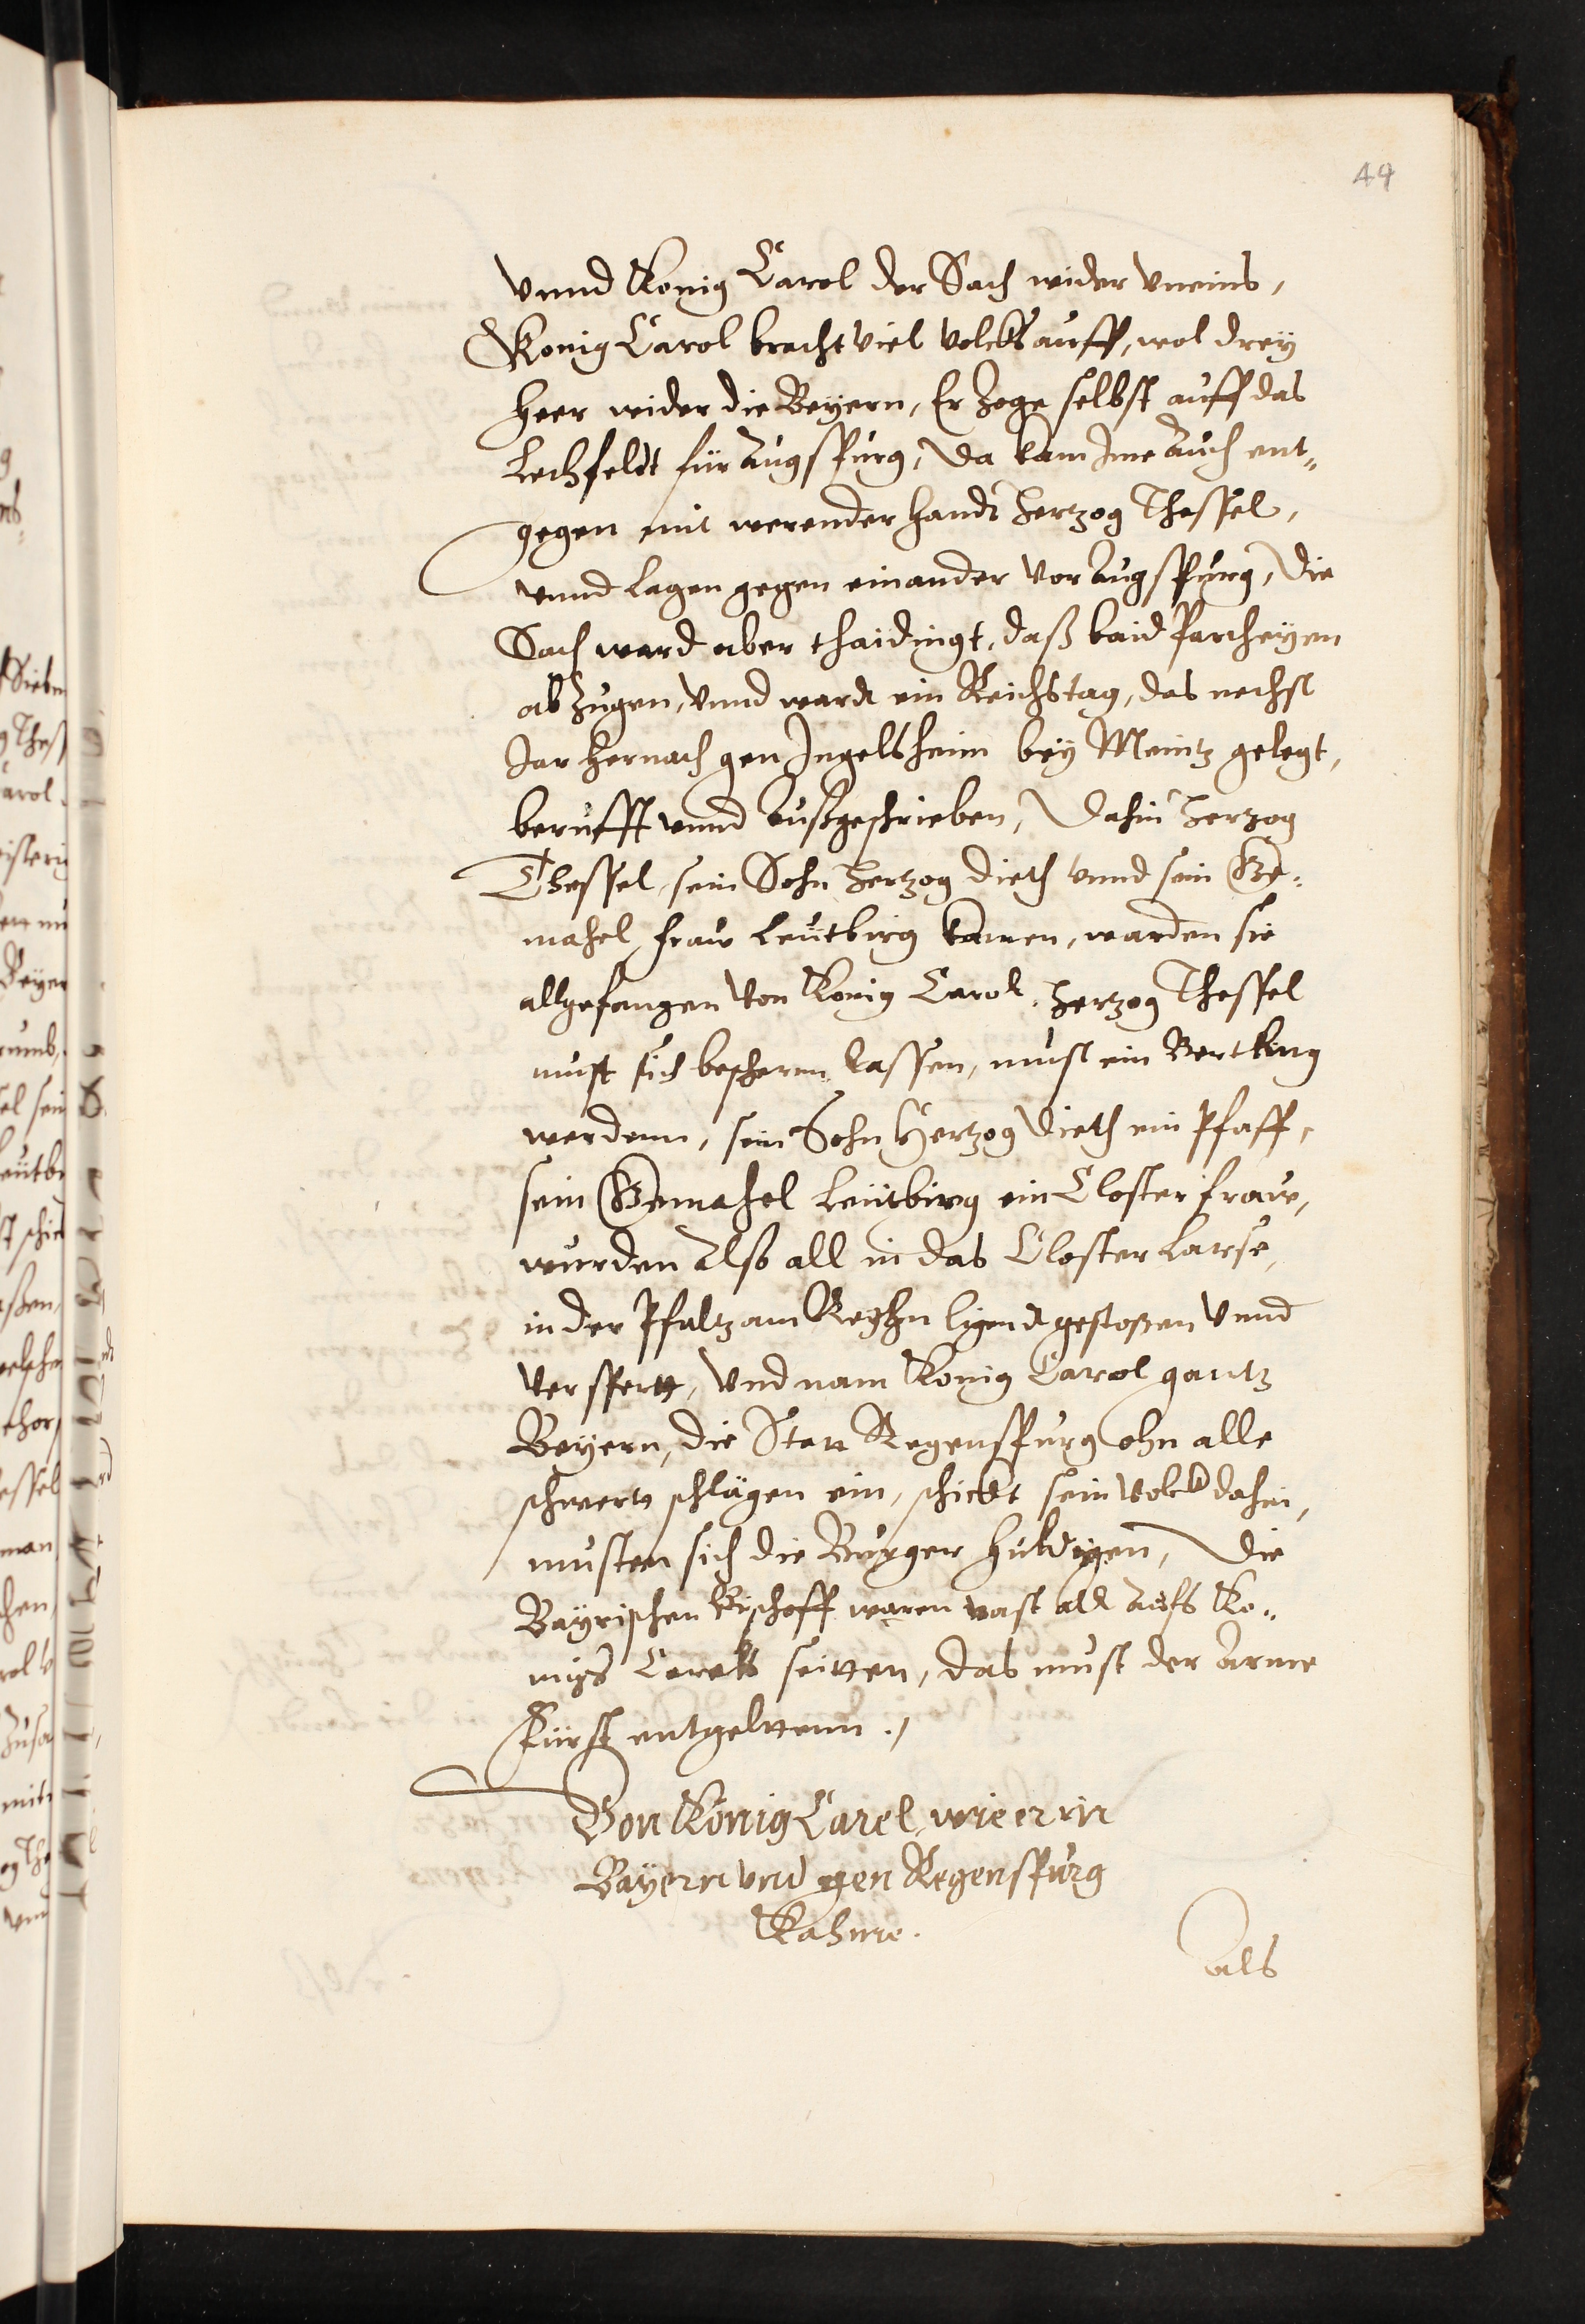 49
vnnd Konig Carol der Sach wider vneins,
Konig Carol bracht viel volcks auff, wol drey
heer wider die Beyern, Er zoge selbst auff das
Lechfeldt für Augspurg, Da kam Ime Auch ent„
gegen mit werender handt Hertzog Thessel,
vnnd lagen gegen einander vor Augspurg, Die
Sach ward aber thaidingt, daß baid Partheyen
ab zugen, vnnd wardt ein Reichstag, das nechst
Jar hernach gen Ingelsheim bey Meintz gelegt,
berufft vnnd Außgeschrieben, Dahin Hertzog
Thessel, sein Sohn Hertzog Dieth vnnd sein Ge„
mahel fraw Leutbirg kamen, warden sie
all gefangen von Konig Carol, Hertzog Thessel
must sich beschern lassen, must ein Bertling
werdenn, sein Sohn Hertzog Dieth ein Pfaff,
sein Gemahel Leutbirg ein Closter fraw,
wurden Also all in das Closter Larse,
in der Pfaltz am Reyhn ligendt gestossen vnnd
versperrt, vnd nam Konig Carol gantz
Beyern, die Statt Regenspurg ohn alle
schwertt schlägen ein, schickt sein volck dahin,
musten sich die Burger huldigen, Die
Bayrischen Bischoff waren vast all Aufs Ko„
nigs Carols seitten, das must der Arme
Fürst entgelttenn ./
Von König Carel, wie er in
Bayern vnd gen Regenspurg
Kahme.
Als